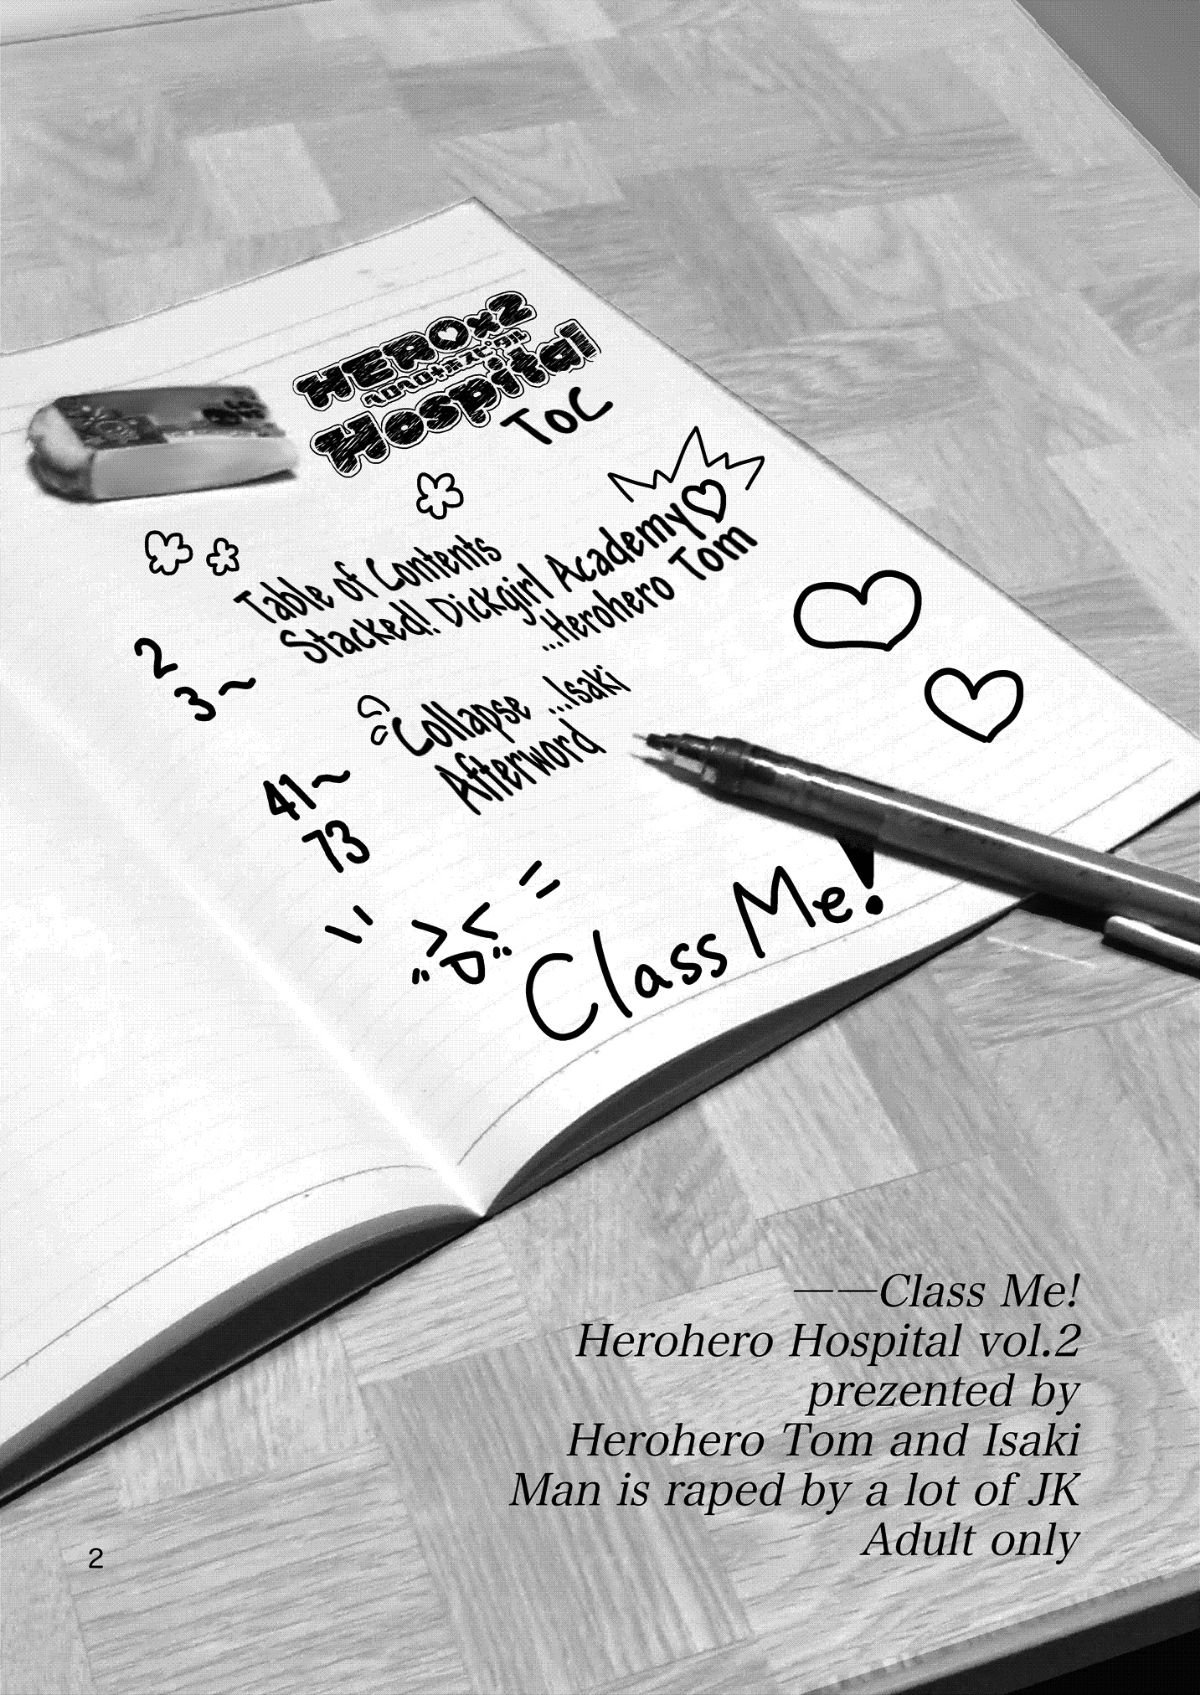 HERO×2
ヘロヘロ+ホスピタル
Hospital
ToC
2
Table of Contents
3~
Stacked! Dickgirl Academy♡
...Herohero Tom
41~
Collapse ...Isaki
73
Afterword
Class Me!
——Class Me!
Herohero Hospital vol.2
prezented by
Herohero Tom and Isaki
Man is raped by a lot of JK
Adult only
2